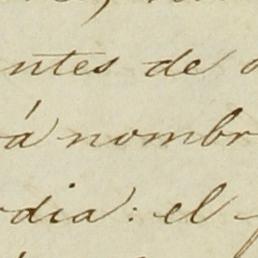 ntes de
á nombr
dia: el